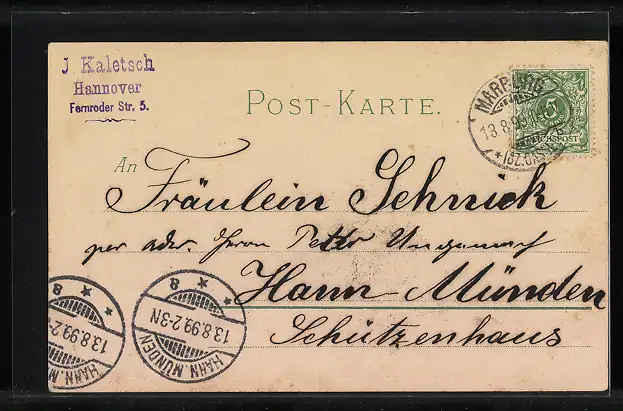 J Kaletsch
Hannover
Fernroder Str. 5.
POST-KARTE.
MARBURG
13.8.99
(BZ.CASSEL)
5
REICHSPOST
An
Fräulein Schnick
per adr. Herrn Ungewach
Hann Münden
Schützenhaus
HANN. MÜNDEN
13.8.99.2-3N
8
HANN. MÜNDEN
13.8.99.2-3N
8